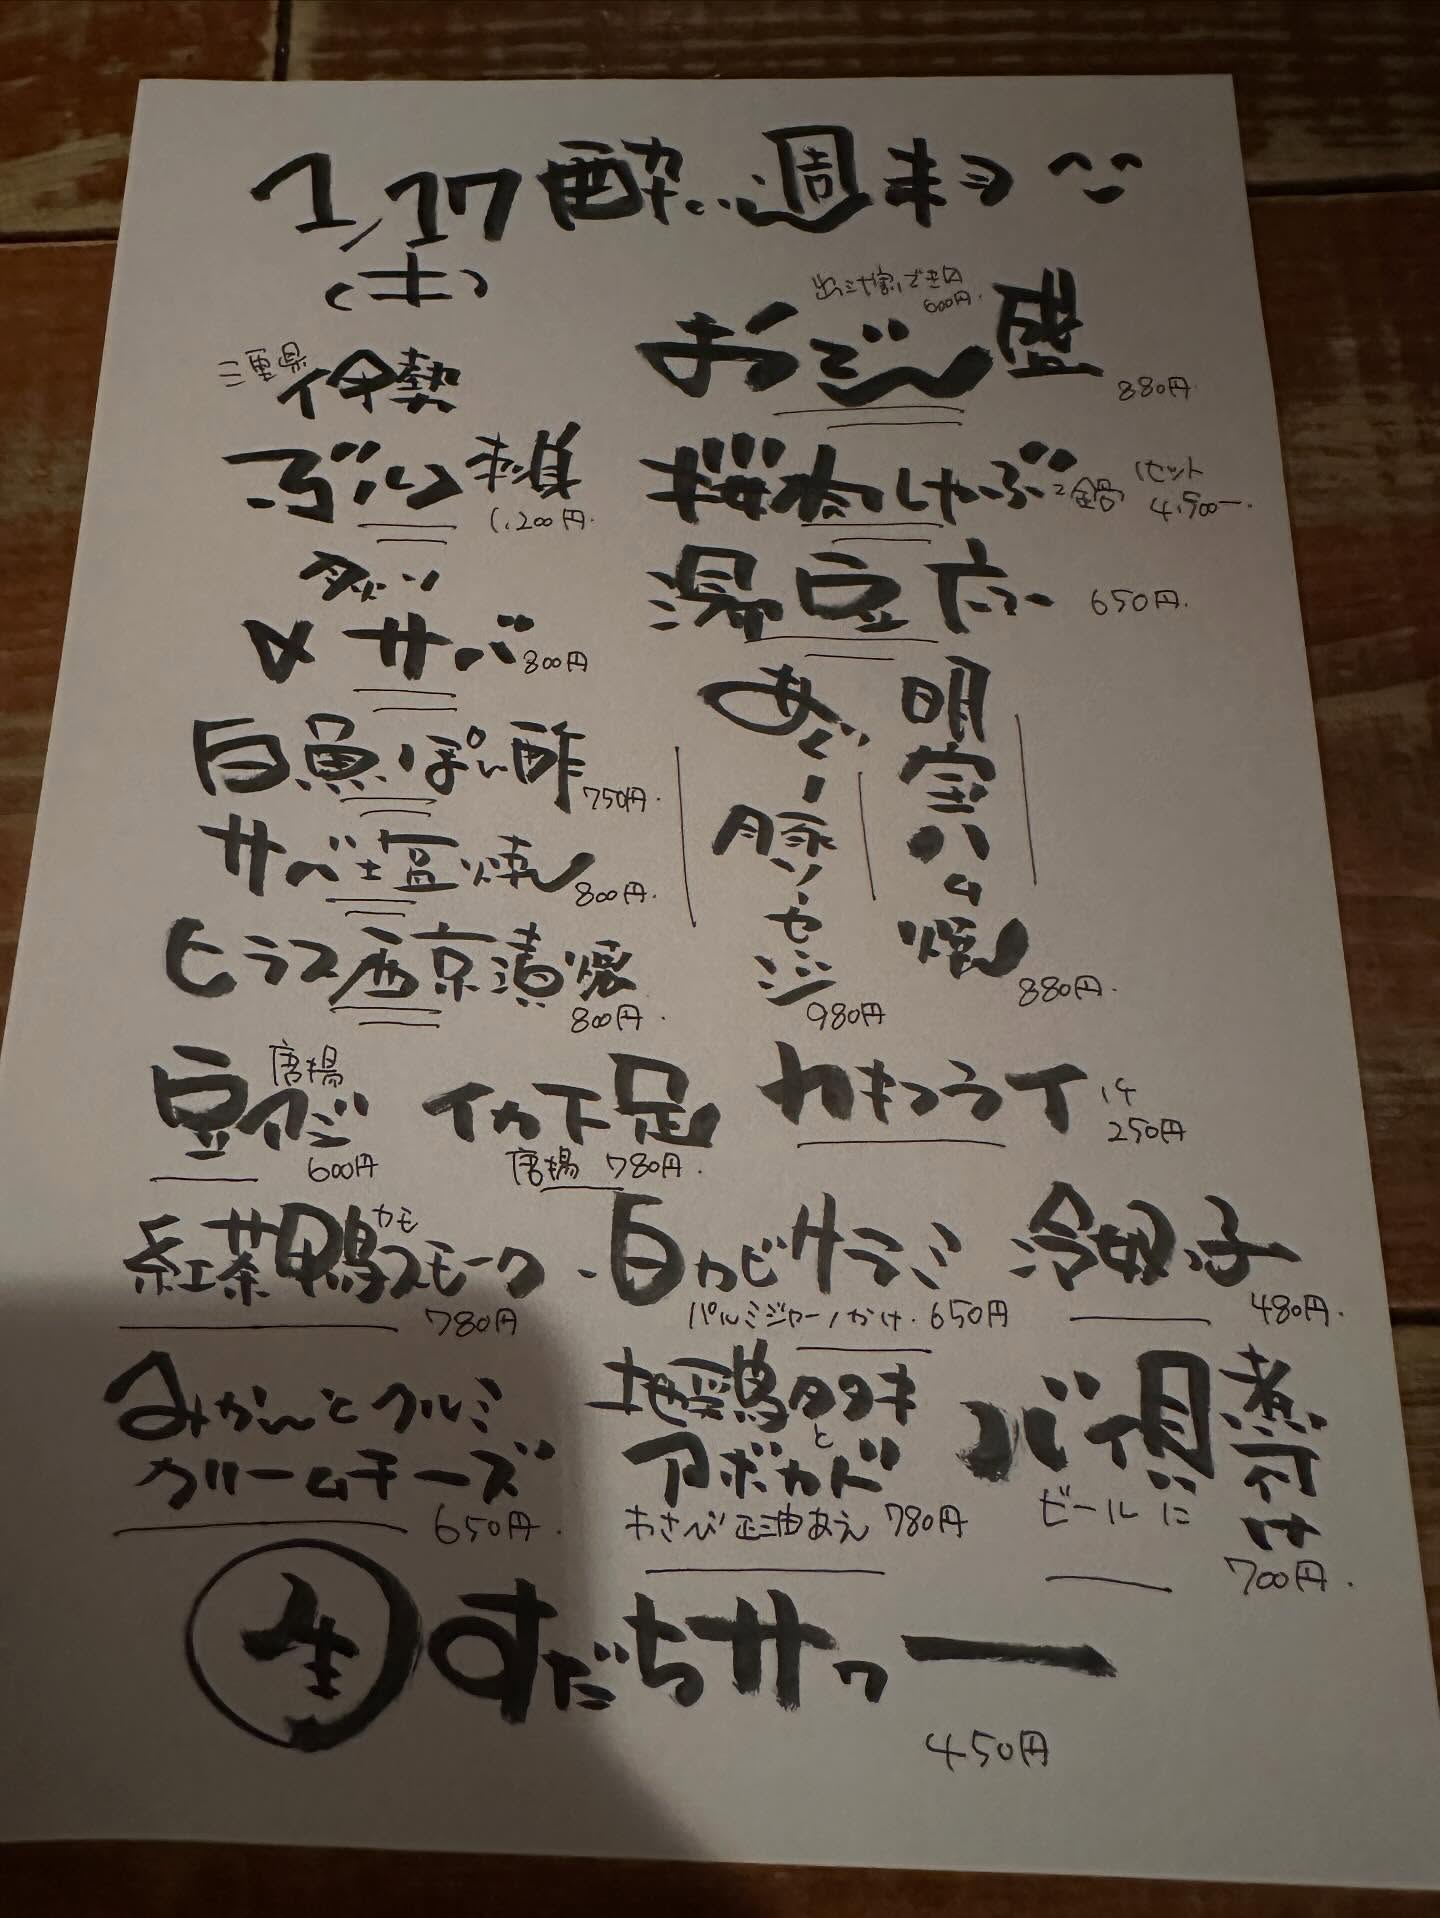 1/17 酔い週末ヨ
(土)
三重県 伊勢
ぶり刺身
1,200円.
〆サバ 800円
白魚ぽん酢 750円.
サバ塩焼 800円.
ヒラス西京漬焼
800円.
出汁割りできロ
600円.
おでん盛
880円
桜肉しゃぶ 鍋 1セット
4,500ー.
湯豆腐 650円.
あぐー豚ソーセージ
980円
明宝ハム焼
880円.
豆アジ 唐揚
600円
イカ下足
唐揚 780円.
カキフライ 1ケ
250円
紅茶鴨スモーク
カモ
780円
白カビサラミ
パルミジャーノかけ. 650円
冷奴
480円.
みかんとクルミ
クリームチーズ
650円.
地鶏タタキ
と
アボカド
わさび正油あえ 780円
バイ貝煮付け
ビールに
700円.
生 すだちサワー
450円